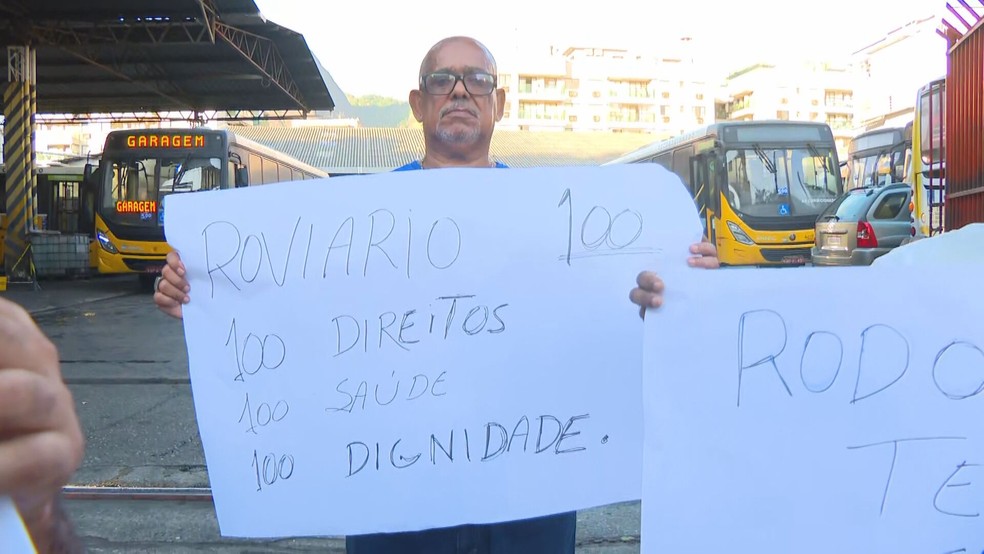 GARAGEM
GARAGEM
ROVIARIO 100
100 DIREITOS
100 SAÚDE
100 DIGNIDADE.
RODO
TE